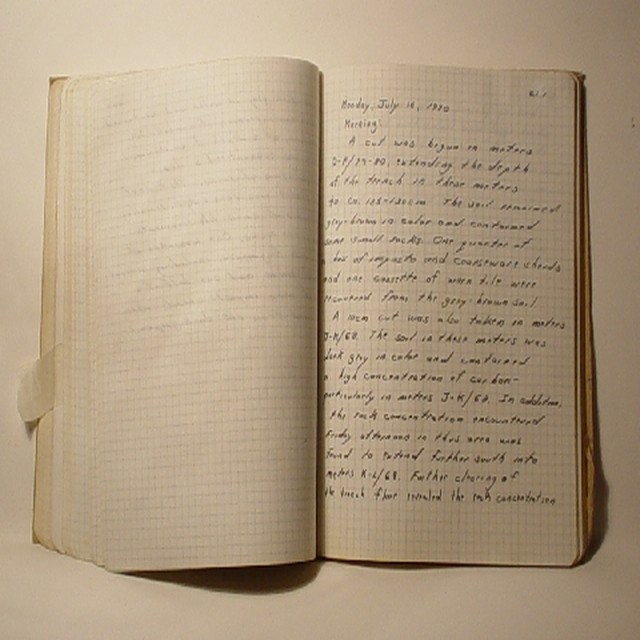 Monday, July 16, 1990
Morning:
A cut was begun in meters
extending the depth
of the trench in these meters
to ca. The soil remained
grey-brown in color and contained
some small rocks. One quarter of
box of impasto and coarseware sherds
and one cassette of were
recovered from the grey-brown soil.
A 10cm cut was also taken in meters
J-K/68. The soil in these meters was
dark grey in color and contained
a high concentration of carbon-
particularly in meters J-K/68. In addition,
the rock concentration encountered
Friday afternoon in this area was
found to extend further south into
meters K-L/68. Further clearing of
the trench floor revealed the rock concentration